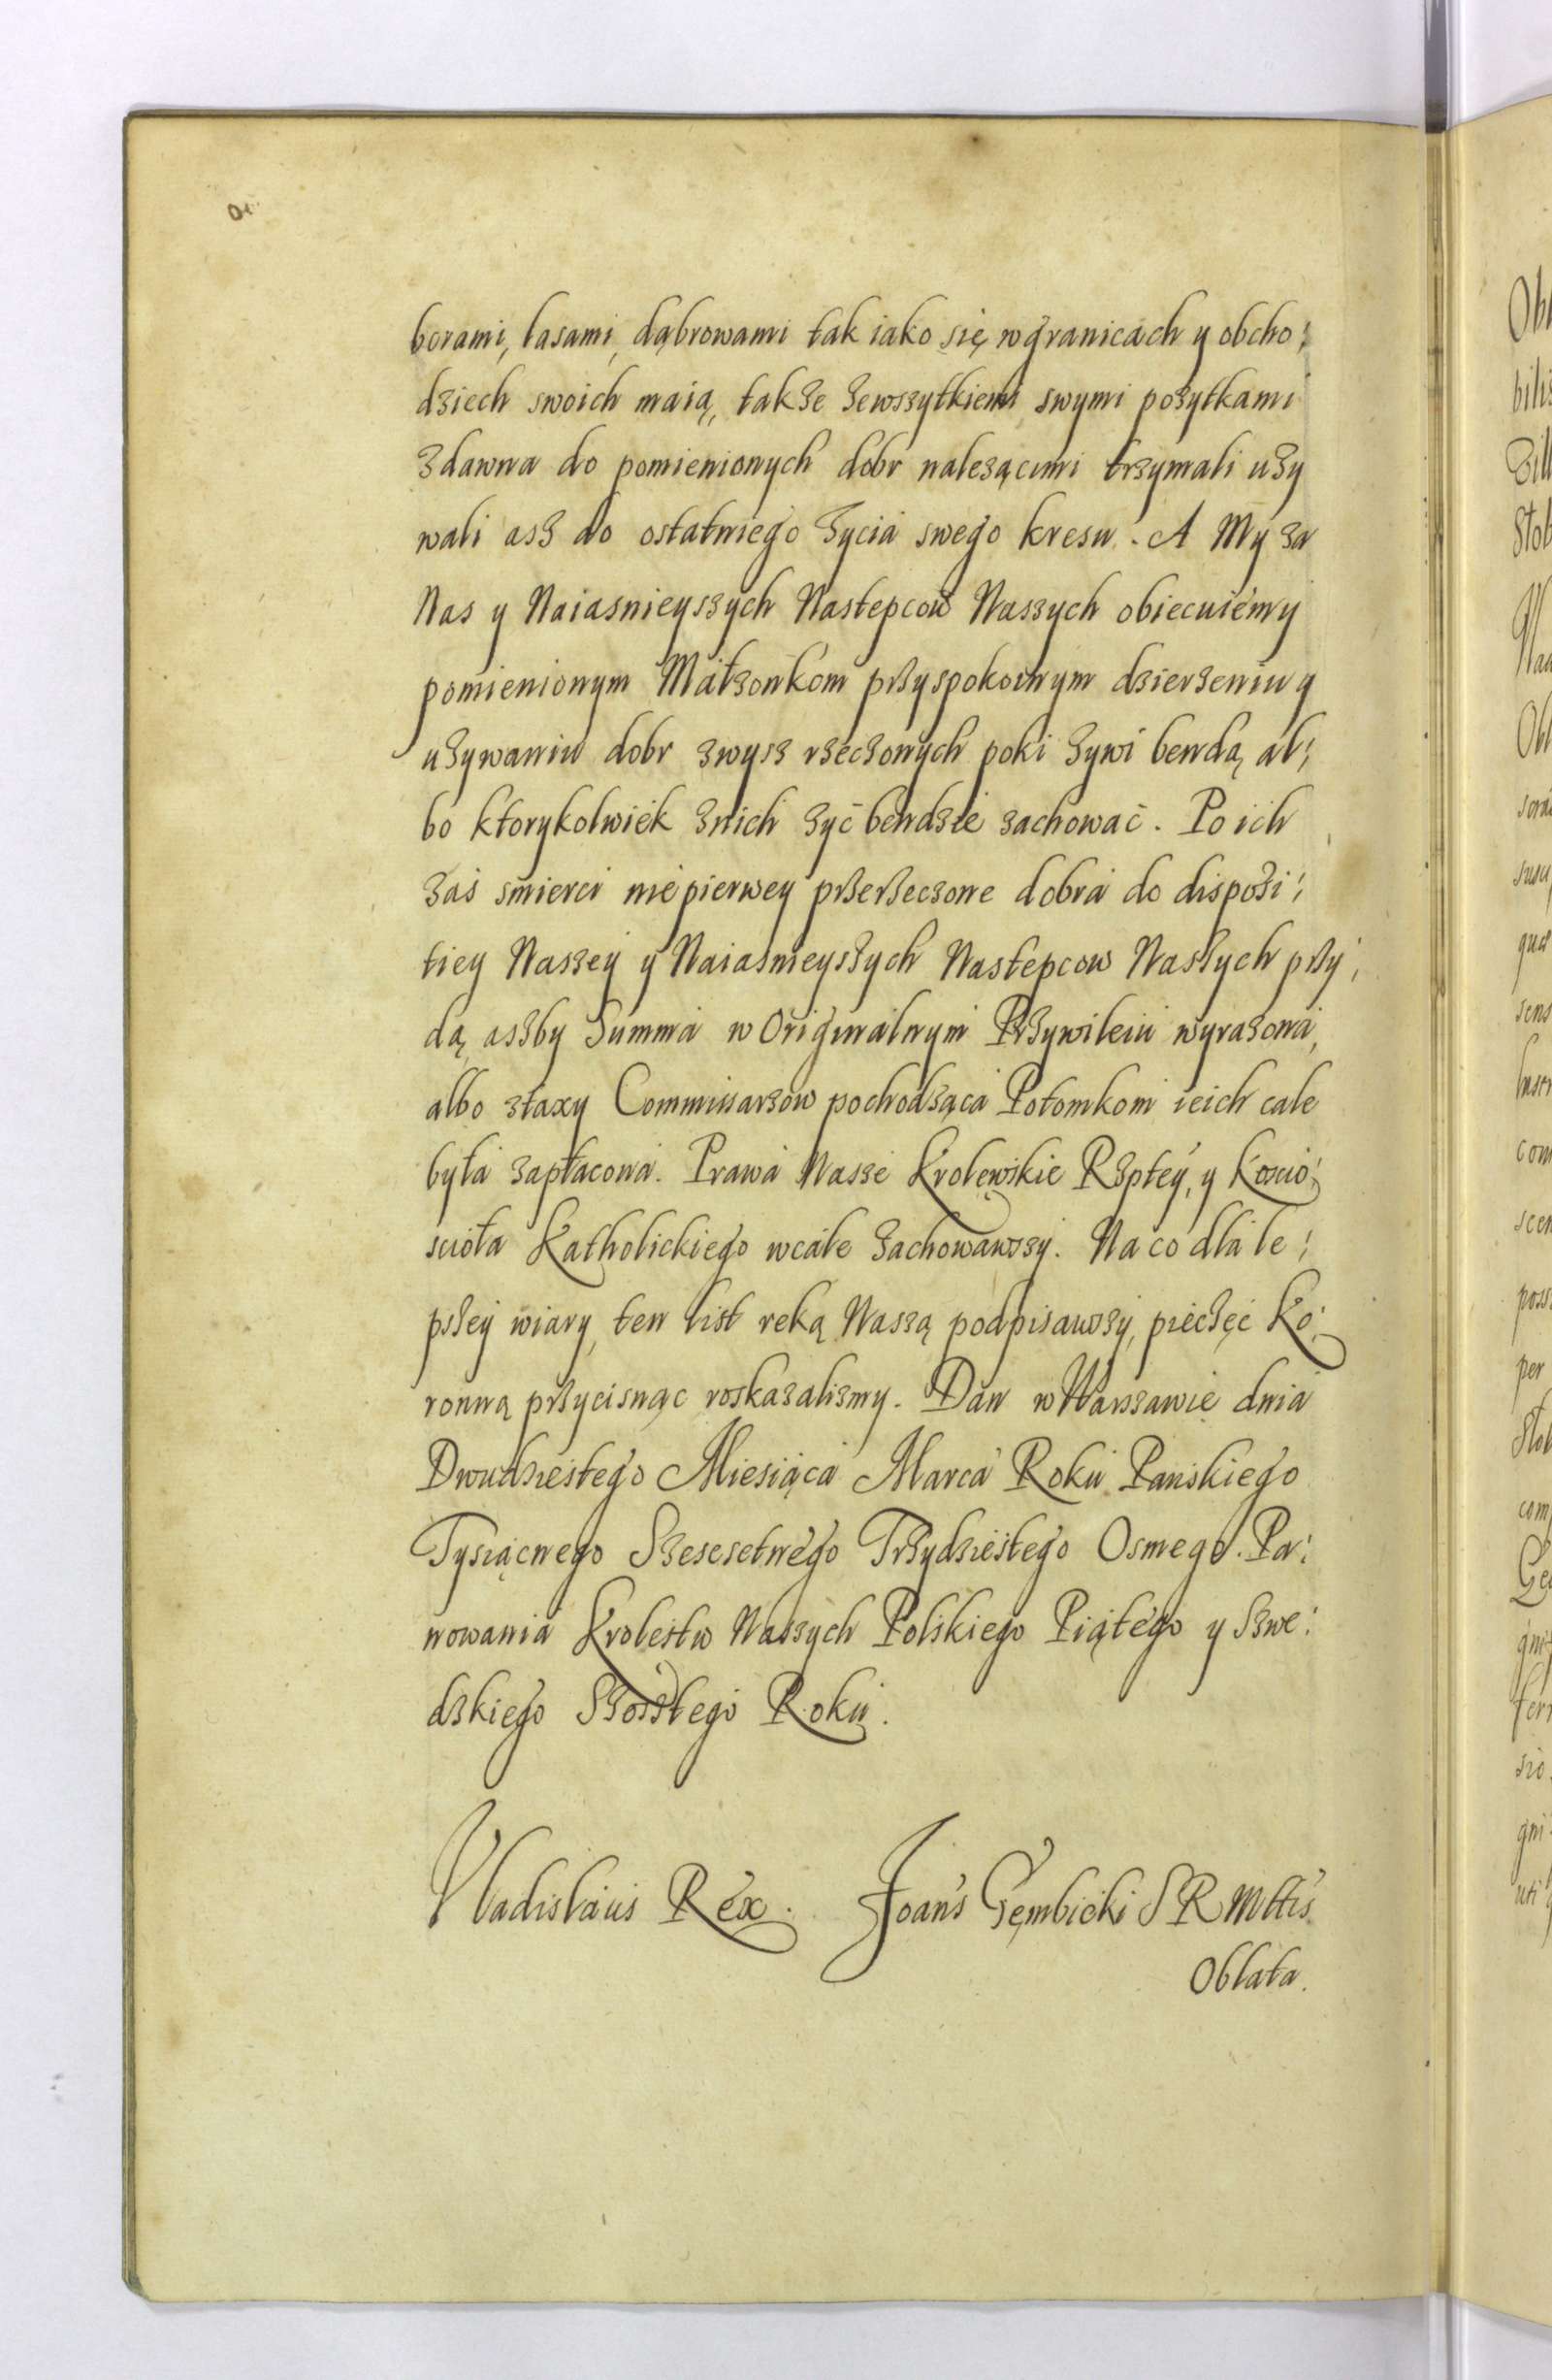 borami, lasami, dąbrowami tak iako się wgranicach y obcho:
dziech swoich maią, takze zewszytkiemi swymi pozytkami
zdawna do pomienionych dobr nalezącymi trzymali uzy
wali asz do ostatniego zycia swego kresu. A My za
Nas y Naiasnieyszych Nastepcow Naszych obiecuiemy
pomienionym Małzonkom przyspokoinym dzierzeniu y
uzywaniu dobr zwysz rzeczonych poki zywi bendą al:
bo ktorykolwiek znich zyć bendzie zachować. Po ich
zaś smierci niepierwey przerzeczone dobra do dispozi:
tiey Naszey y Naiasnieyszych Nastepcow Naszych przy:
dą, aszby Summa w Originalnym Przywileiu wyrazona,
albo ztaxy Commissarzow pochodząca Potomkom ieich cale
była zapłacona. Prawa Nasze Krolewskie Rzptey, y Koscio:
scioła Katholickiego wcale zachowawszy. Na co dla le:
pszey wiary, ten list reką Naszą podpisawszy, pieczęć Ko:
ronną przycisnąc roskazalismy. Dan w Warszawie dnia
Dwudziestego Miesiąca Marca Roku Panskiego
Tysiącnego Szescsetnego Trzydziestego Osmego. Pa:
nowania Krolestw Naszych Polskiego Piątego y Szwe:
dzkiego Szosstego Roku.
Vladislaus Rex. Joan's Gęmbicki S R Mttis
Oblata.